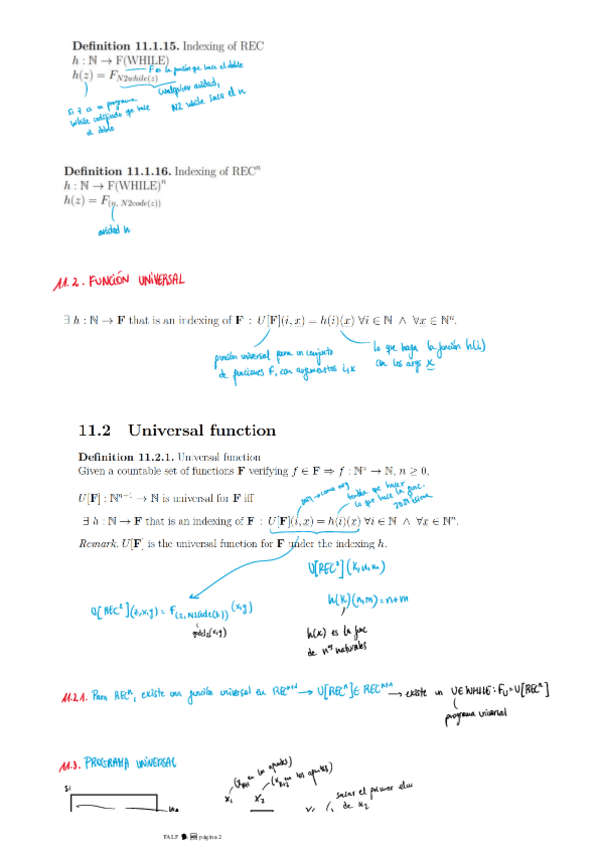 Definition 11.1.15. Indexing of REC
h : ℕ → F(WHILE)
h(z) = F_{N2while(z)}
F es la función que hace el doble
cualquier aridad,
N2 while saca el n
Si z es un programa
while codificado que hace
el doble
Definition 11.1.16. Indexing of RECⁿ
h : ℕ → F(WHILE)ⁿ
h(z) = F_{(n, N2code(z))}
aridad n
11.2. FUNCIÓN UNIVERSAL
∃ h : ℕ → F that is an indexing of F : U[F](i, x) = h(i)(x) ∀i ∈ ℕ ∧ ∀x ∈ ℕⁿ.
función universal para un conjunto
de funciones F, con argumentos i, x
lo que haga la función h(i)
con los args x
11.2 Universal function
Definition 11.2.1. Universal function
Given a countable set of functions F verifying f ∈ F ⇒ f : ℕⁿ → ℕ, n ≥ 0,
U[F] : ℕⁿ⁺¹ → ℕ is universal for F iff
como arg
tendría que hacer
lo que hace la func.
∃ h : ℕ → F that is an indexing of F : U[F](i, x) = h(i)(x) ∀i ∈ ℕ ∧ ∀x ∈ ℕⁿ.
Remark. U[F] is the universal function for F under the indexing h.
h(k)(n,m) = n+m
h(k) es la func
de nos naturales
11.2.1. Para RECⁿ, existe una función universal en RECⁿ⁺¹ → U[RECⁿ] ∈ RECⁿ⁺¹ → existe un U ∈ WHILE : F_U = U[RECⁿ]
programa universal
11.3. PROGRAMA UNIVERSAL
sacar el primer elem
de x2